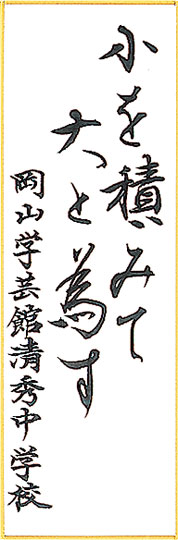 小を積みて
大と為す
岡山学芸館清秀中学校